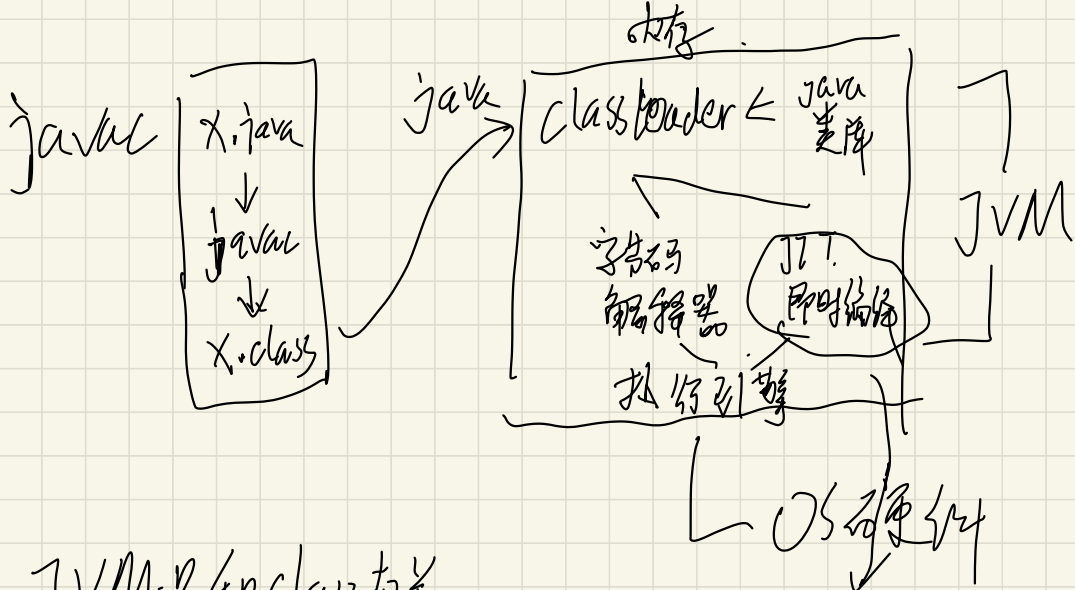 内存
javac
x.java
javac
x.class
java
classloader
java
类库
字节码
解释器
JIT
即时编译
执行引擎
JVM
OS硬件